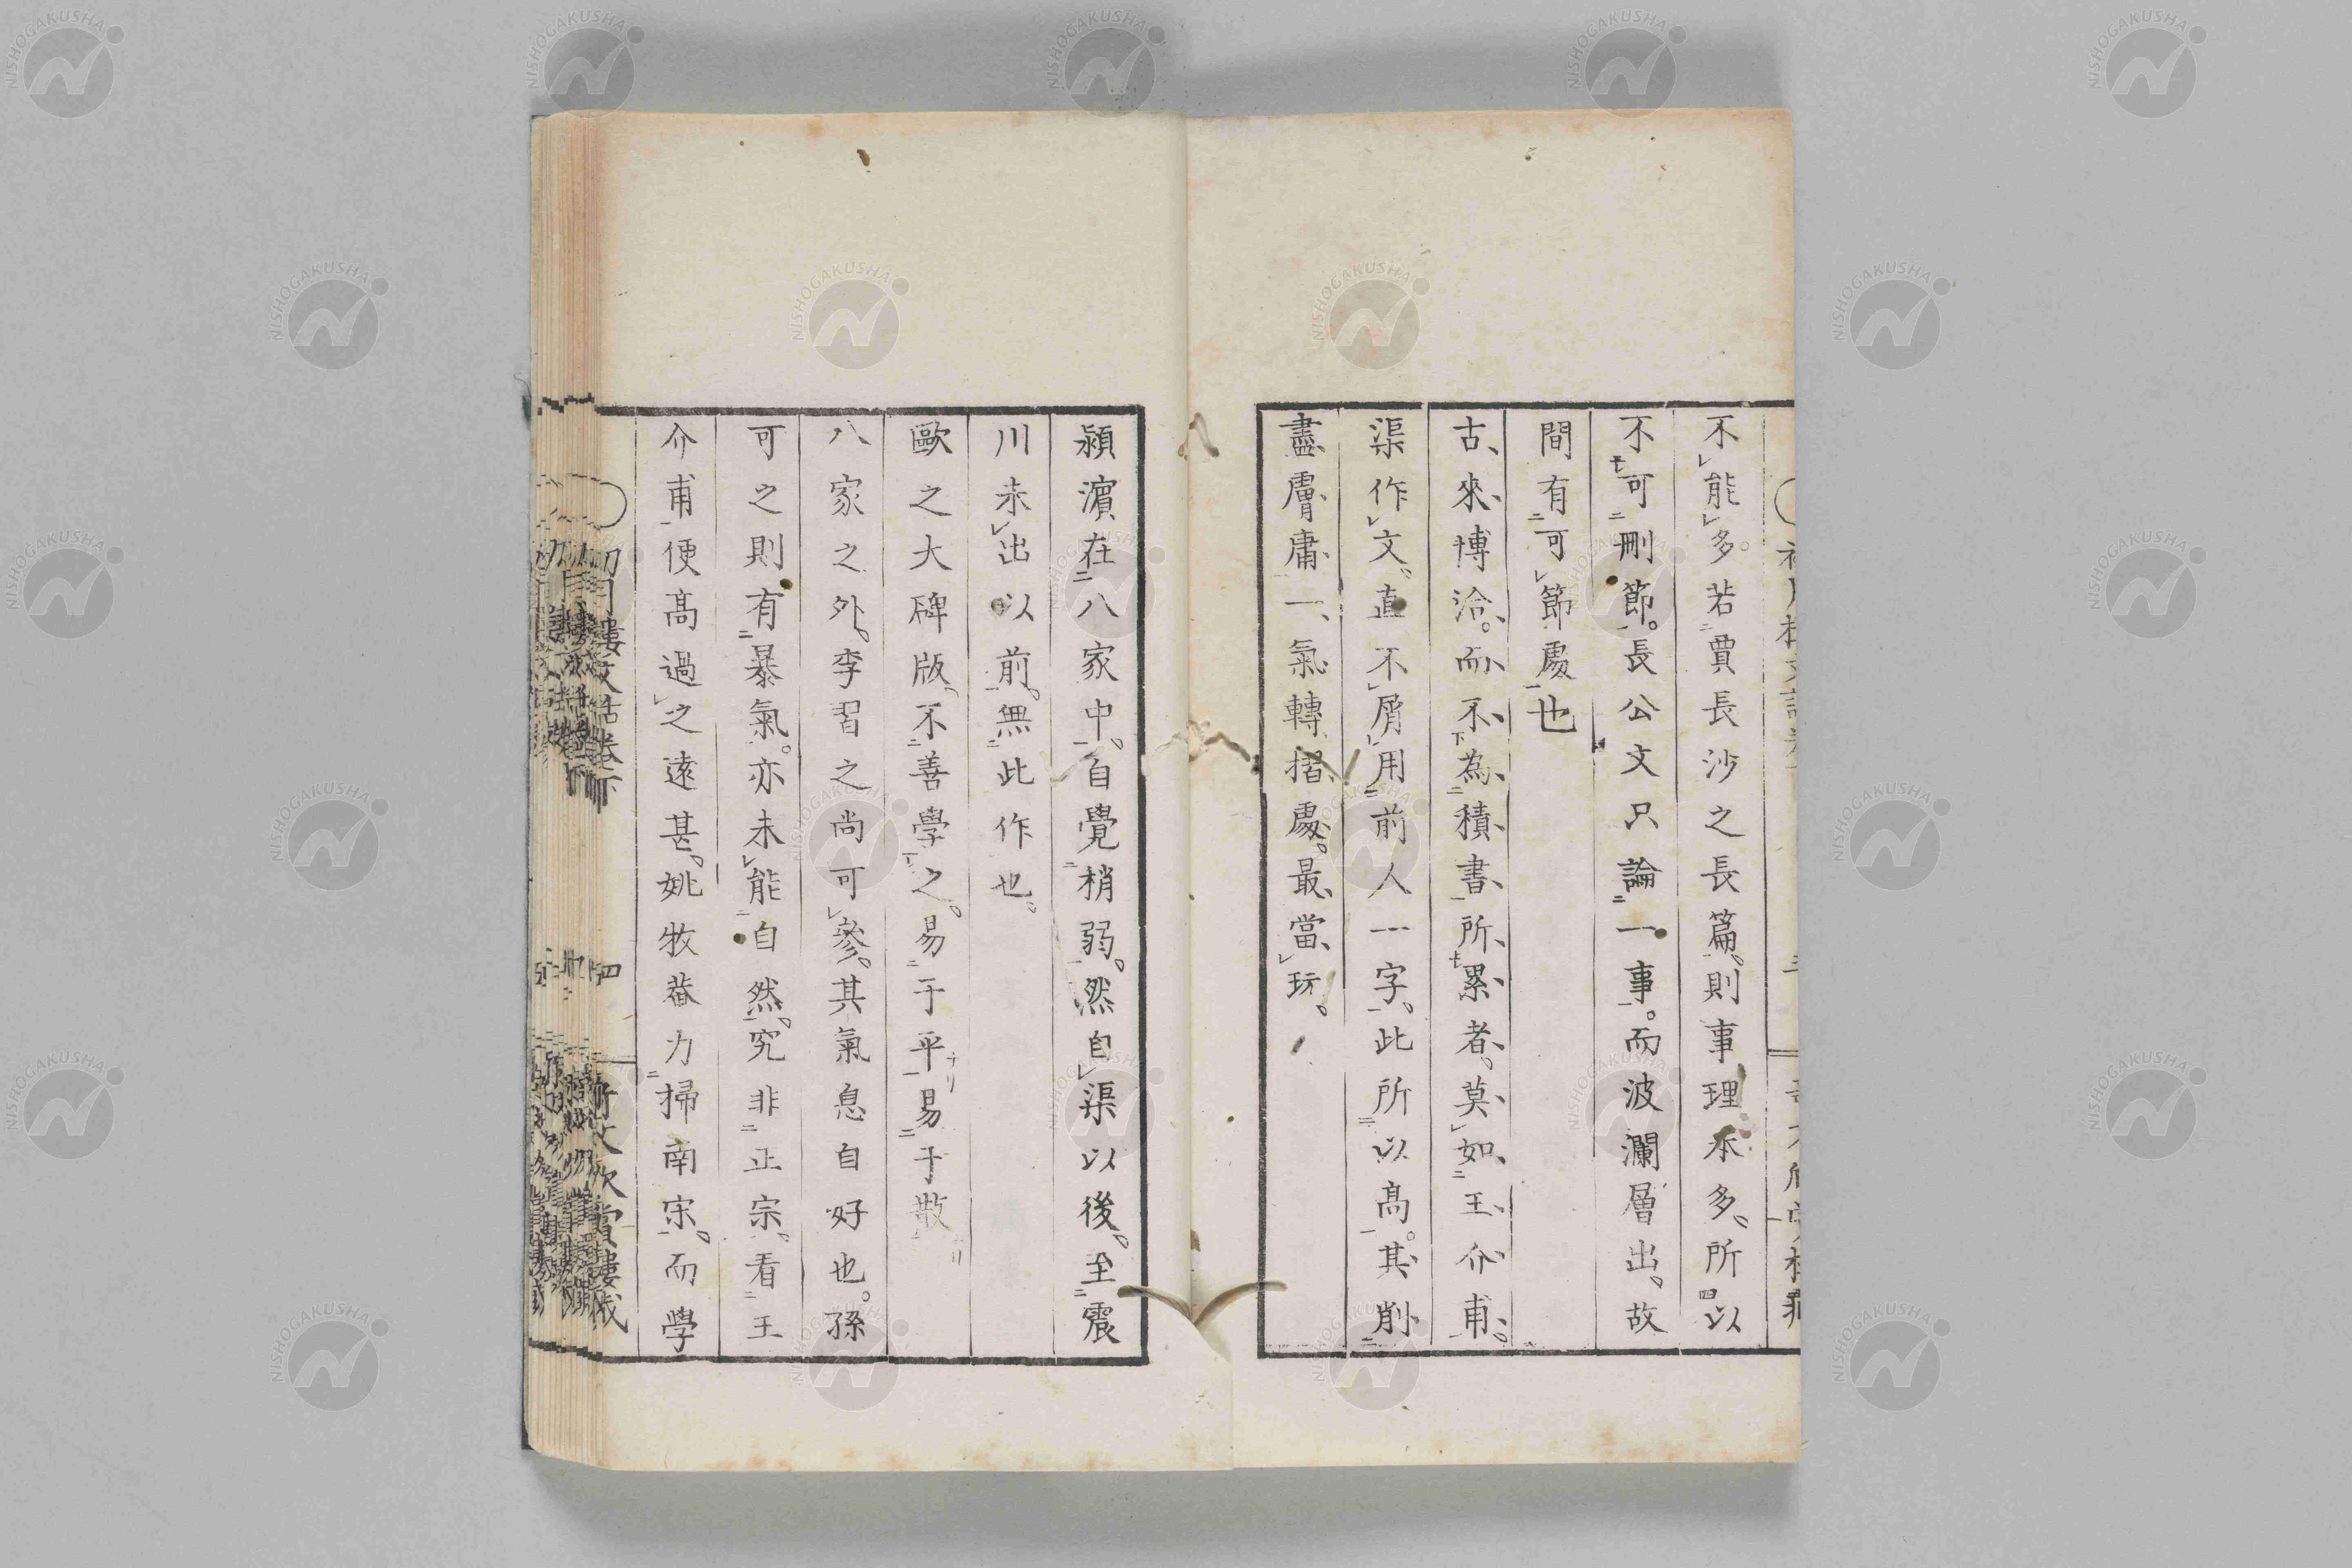 不能多。若賈長沙之長篇。則事理本多。所以
不可刪節。長公文只論一事。而波瀾層出。故
間有可節處也
古來博洽。而不為積書所累者。莫如王介甫。
渠作文。直不屑用前人一字。此所以高。其削
盡膚庸。一氣轉摺處。最當玩。
潁濱在八家中。自覺稍弱。然自渠以後。至震
川未出以前。無此作也。
歐之大碑版。不善學之。易于平易于散
八家之外。李習之尚可參。其氣息自好也。孫
可之則有暴氣。亦未能自然。究非正宗。看王
介甫便高過之遠甚。姚牧菴力掃南宋。而學
NISHOGAKUSHA